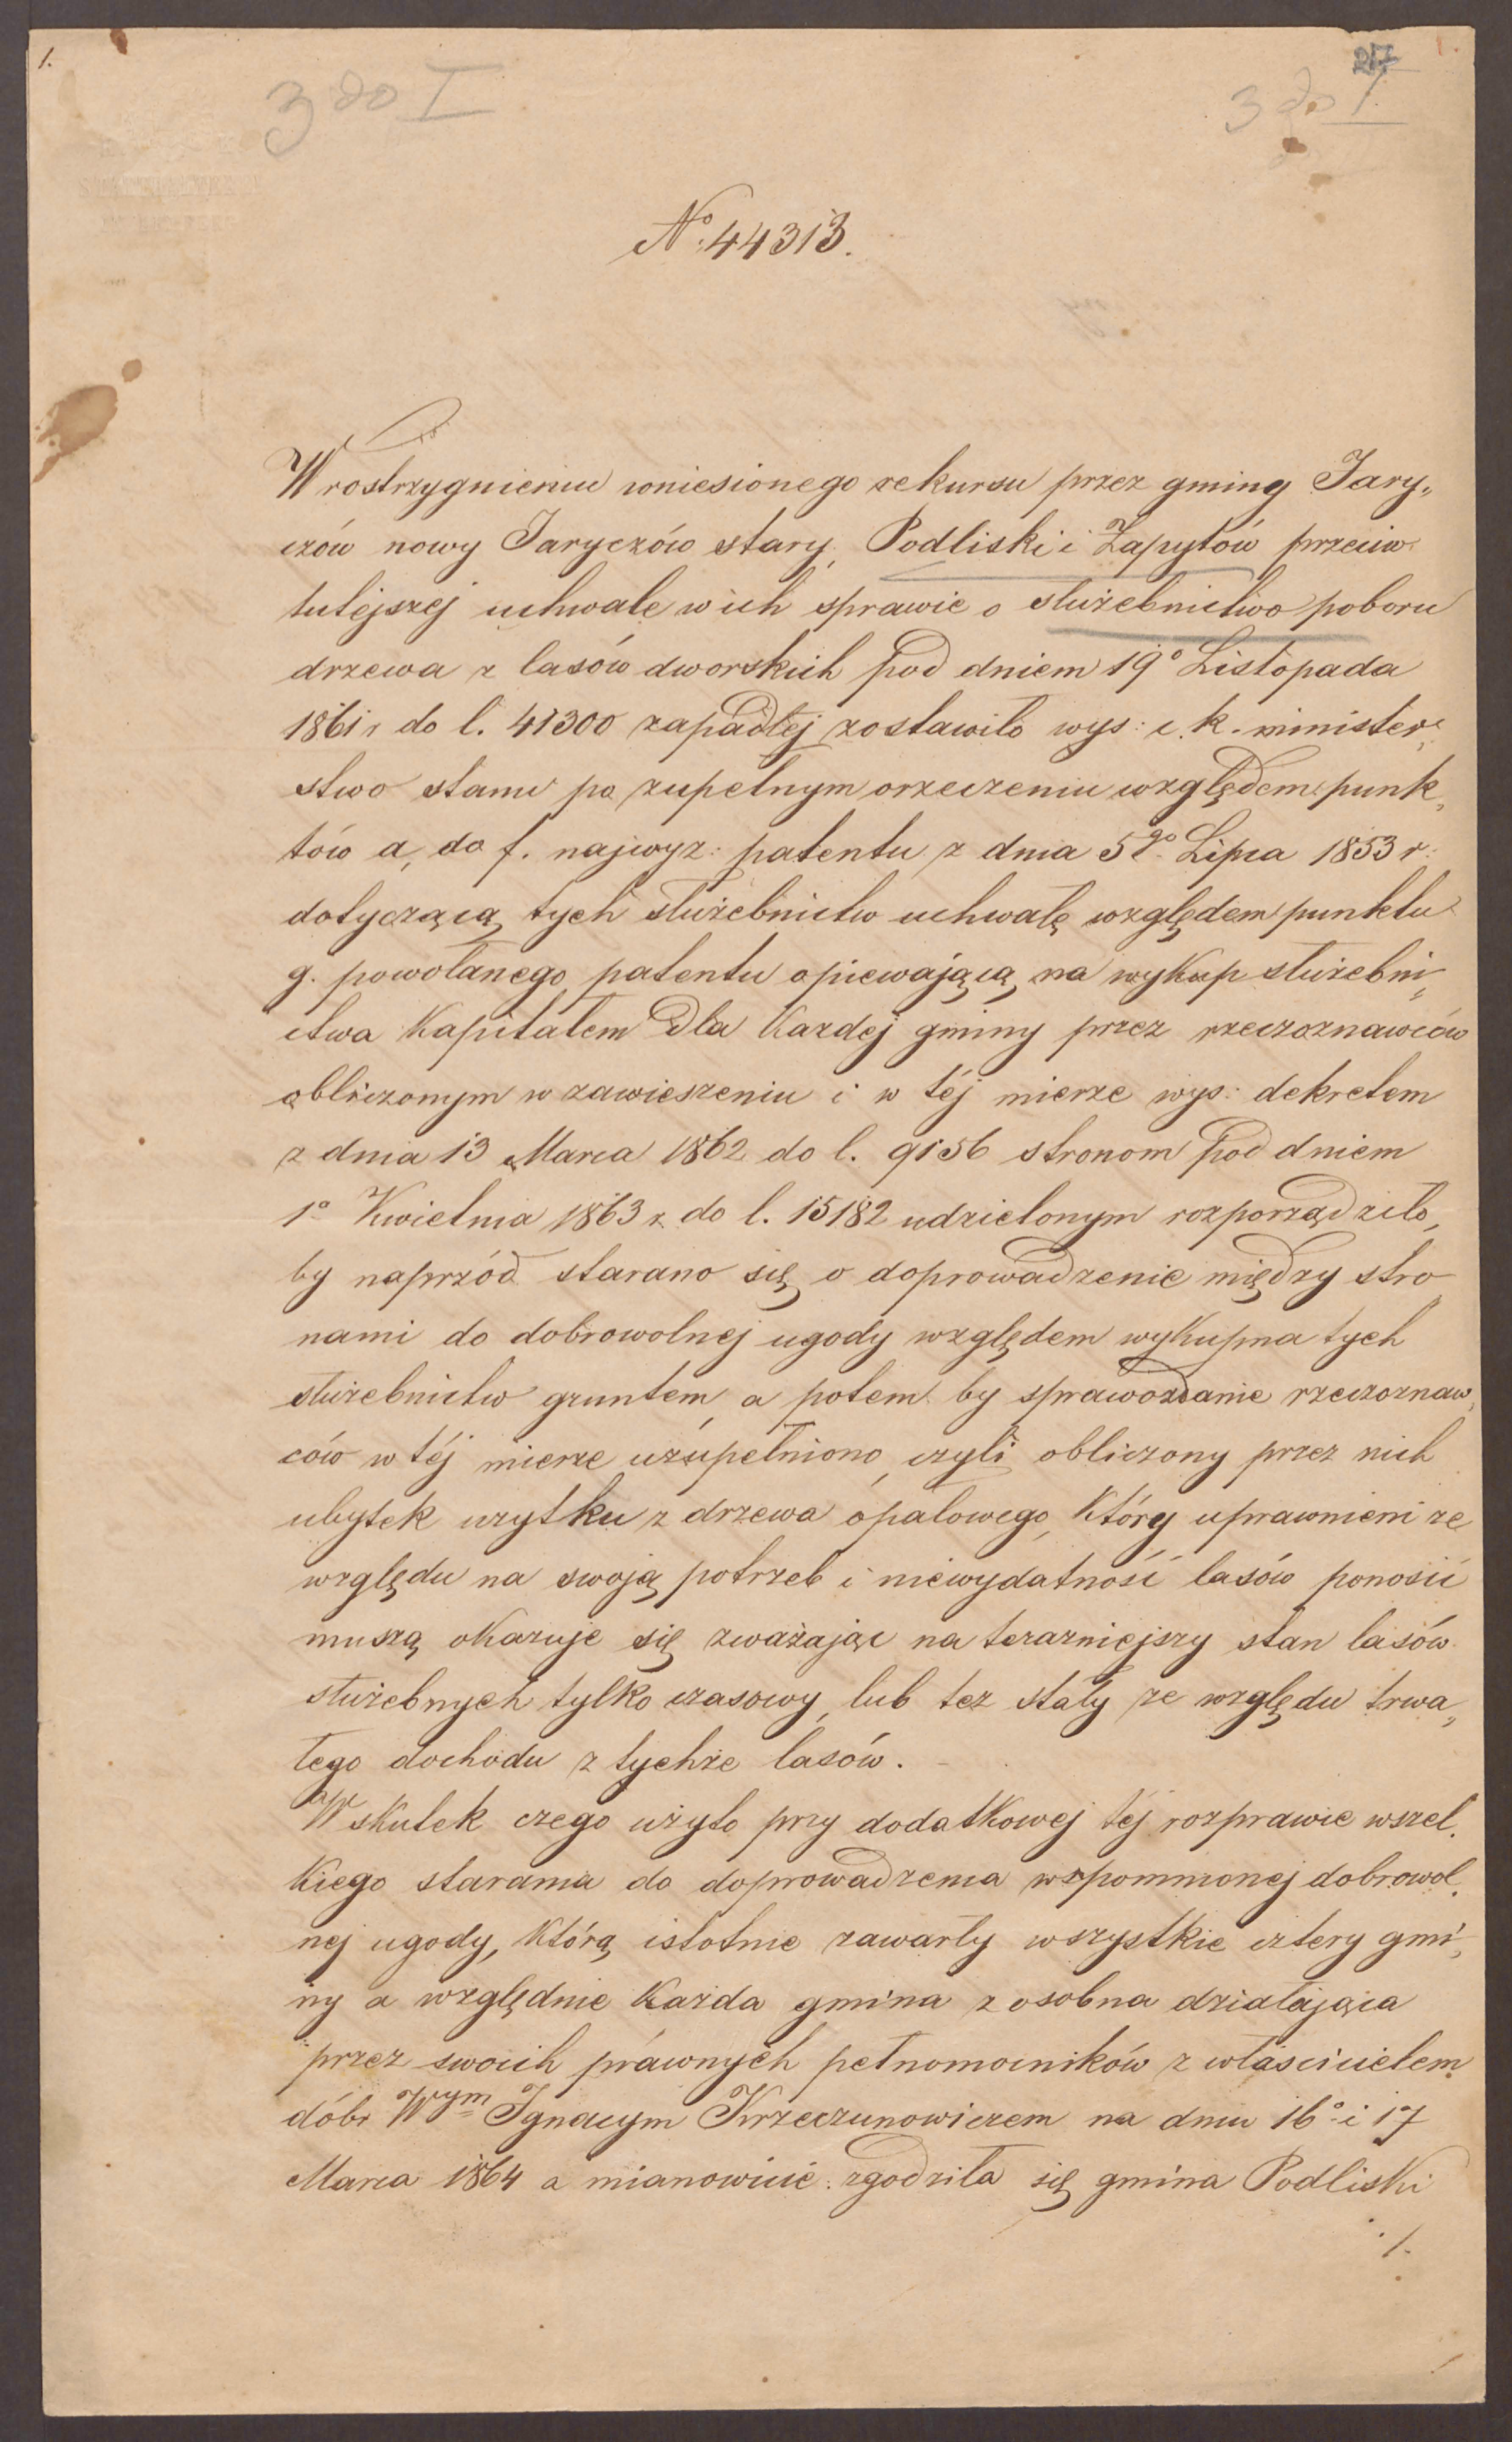 1.
217
3 do I
3 do I.
No. 44313.
W rostrzygnieniu wniesionego rekursu przez gminy Jary„
czów nowy Jaryczów stary, Podliski i Zapytów przeciw
tutéjszej uchwale w ich sprawie o służebnictwo poboru
drzewa z lasów dworskich pod dniem 19o Listopada
1861 r do l. 41300 zapadłej zostawiło wys: c. k. minister„
stwo stanu po zupełnym orzeczeniu względem punk„
tów a, do f. najwyz: patentu z dnia 5go Lipca 1853 r:
dotyczącą tych służebnictw uchwałę względem punktu
g. powołanego patentu opiewającą na wykup służebni„
ctwa Kapitałem dla Kazdej gminy przez rzeczoznawców
obliczonym w zawieszeniu i w téj mierze wys: dekretem
z dnia 13 Marca 1862 do l. 9156 stronom pod dniem
1o Kwietnia 1863 r. do l. 15182 udzielonym rozporządziło,
by naprzód starano się o doprowadzenie między stro„
nami do dobrowolnej ugody względem wykupna tych
służebnictw gruntem, a potem by sprawozdanie rzeczoznaw„
ców w téj mierze uzupełniono, czyli obliczony przez nich
ubytek uzytku z drzewa opałowego, Który uprawnieni ze
względu na swoją potrzeb i niewydatność lasów ponosić
muszą okazuje się zważając na terazniejszy stan lasów
służebnych tylko czasowy, lub tez stały ze względu trwa„
łego dochodu z tychże lasów. -
W skutek czego użyto przy dodatkowej téj rozprawie wszel„
kiego starania do doprowadzenia wspomnionej dobrowol„
nej ugody, Którą istotnie zawarły wszystkie cztery gmi„
ny a względnie Każda gmina z osobna działająca
przez swoich prawnych pełnomocników z właścicielem
dóbr Wym Ignacym Krzeczunowiczem na dniu 16o i 17
Marca 1864 a mianowicie: zgodziła się gmina Podliski
./.